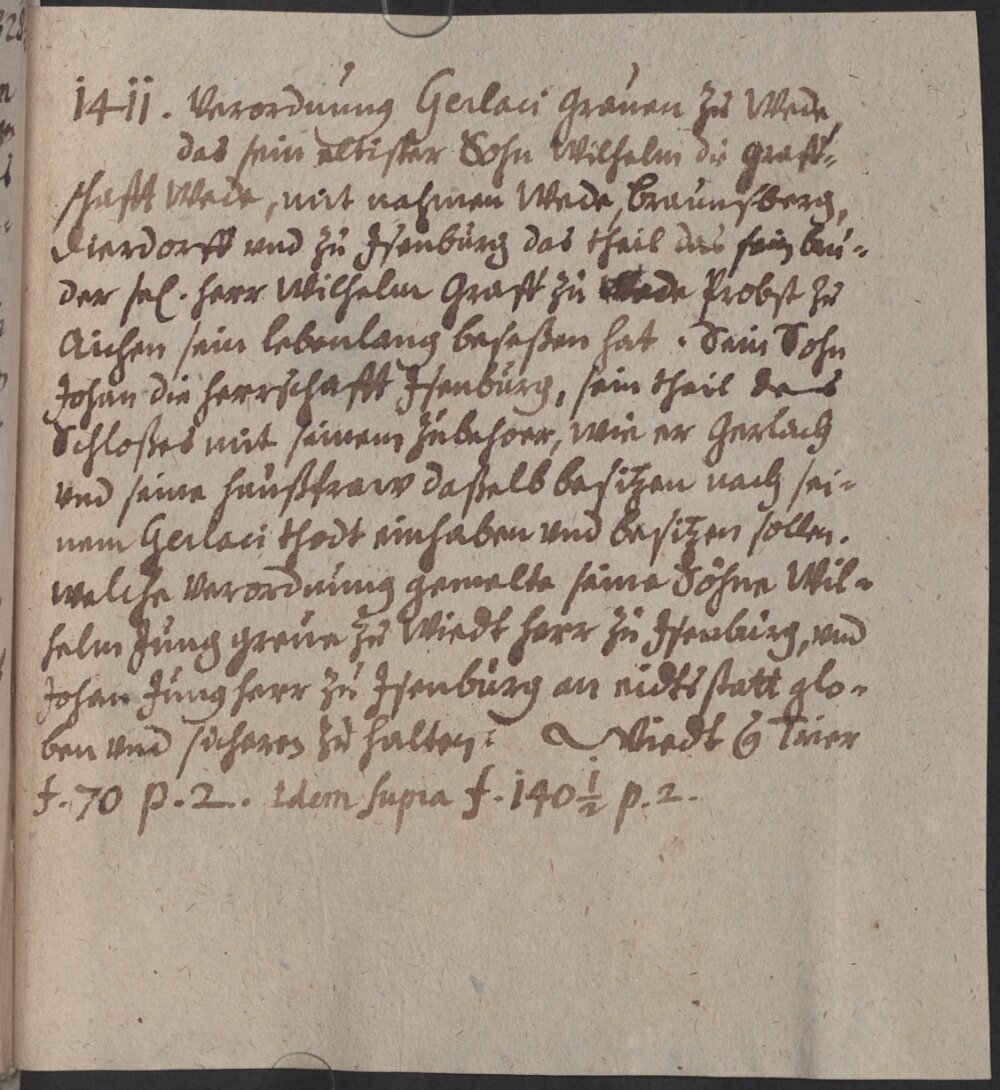 1411. Verordnung Gerlaci Greuen zu Wede,
das sein eltister Sohn Wilhelm die Graff-
schafft Wede, mit nahmen Wede, Braunsberg,
Dierdorff vnd zu Isenburg das theil das sein bru-
der sel. herr Wilhelm Graff zu Wede Probst zu
Aichen sein lebenlang beseßen hat. Sein Sohn
Johan die herrschafft Isenburg, sein theil des
Schloßes mit seinem zubehoer, wie er Gerlach
vnd seine haußfraw daßelb besitzen nach sei-
nem Gerlaci thodt einhaben vnd besitzen sollen.
welche verordnung gemelte seine Söhne Wil-
helm Jung greue zu Wiedt herr zu Isenburg, vnd
Johan Jungherr zu Isenburg an eidtsstatt glo-
ben vnd sicheren zu halten. Wiedt & Trier
f. 70 p. 2. Idem supra f. 140 1/2 p. 2.